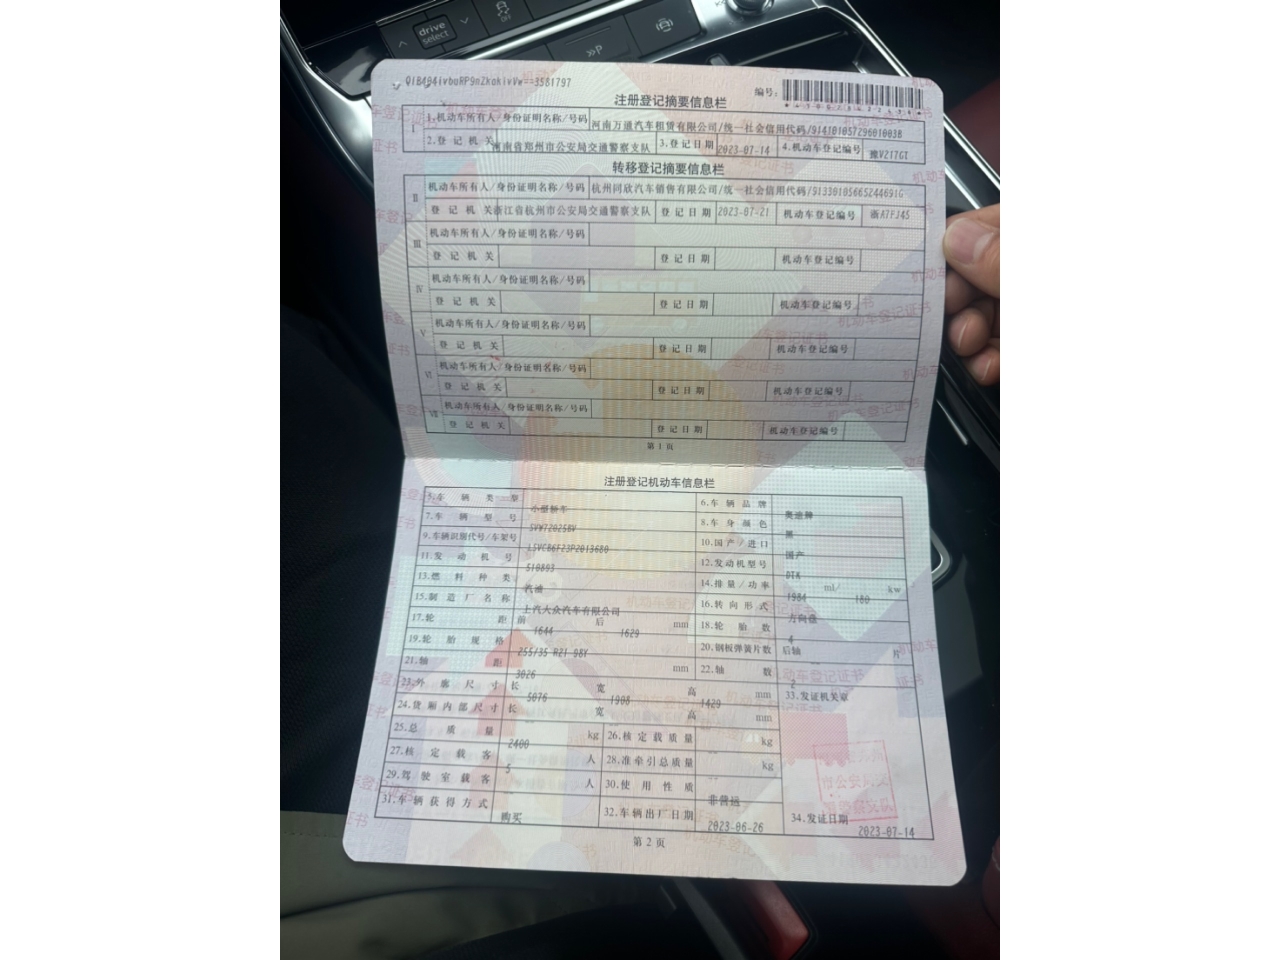 drive select
OFF
P
Q1B494ivboRP9nZkokivVw==3581797
编号:
注册登记摘要信息栏
I 1.机动车所有人/身份证明名称/号码 河南万通汽车租赁有限公司/统一社会信用代码/91410105729601003B
2.登记机关 河南省郑州市公安局交通警察支队 3.登记日期 2023-07-14 4.机动车登记编号 豫V217GT
转移登记摘要信息栏
II 机动车所有人/身份证明名称/号码 杭州同欣汽车销售有限公司/统一社会信用代码/91330105665244691G
登记机关 浙江省杭州市公安局交通警察支队 登记日期 2023-07-21 机动车登记编号 浙A7FJ45
III 机动车所有人/身份证明名称/号码
登记机关 登记日期 机动车登记编号
IV 机动车所有人/身份证明名称/号码
登记机关 登记日期 机动车登记编号
V 机动车所有人/身份证明名称/号码
登记机关 登记日期 机动车登记编号
VI 机动车所有人/身份证明名称/号码
登记机关 登记日期 机动车登记编号
VII 机动车所有人/身份证明名称/号码
登记机关 登记日期 机动车登记编号
第1页
注册登记机动车信息栏
5.车辆类型 小型轿车 6.车辆品牌 奥迪牌
7.车辆型号 SVW72025BV 8.车身颜色 黑
9.车辆识别代号/车架号 LSVCB6F23P2013680 10.国产/进口 国产
11.发动机号 510893 12.发动机型号 DTA
13.燃料种类 汽油 14.排量/功率 1984 ml/ 180 kw
15.制造厂名称 上汽大众汽车有限公司 16.转向形式 方向盘
17.轮距 前 1644 后 1629 mm 18.轮胎数 4
19.轮胎规格 255/35 R21 98Y 20.钢板弹簧片数 后轴 -- 片
21.轴距 3026 mm 22.轴数 2
23.外廓尺寸 长 5076 宽 1908 高 1429 mm 33.发证机关章
24.货厢内部尺寸 长 -- 宽 -- 高 -- mm
25.总质量 2400 kg 26.核定载质量 -- kg
27.核定载客 5 人 28.准牵引总质量 -- kg
29.驾驶室载客 -- 人 30.使用性质 非营运
31.车辆获得方式 购买 32.车辆出厂日期 2023-06-26 34.发证日期 2023-07-14
第2页